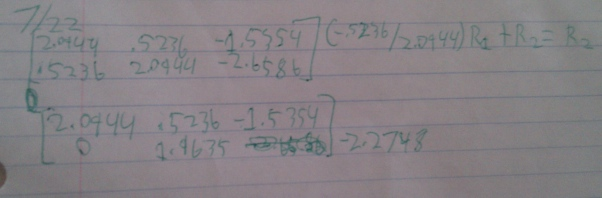 7/22
[2.0944 .5236 -1.5354] (-.5236/2.0944)R1 + R2 = R2
[.5236 2.0944 -2.6586]
[2.0944 .5236 -1.5354]
[0 1.9635 ] -2.2748